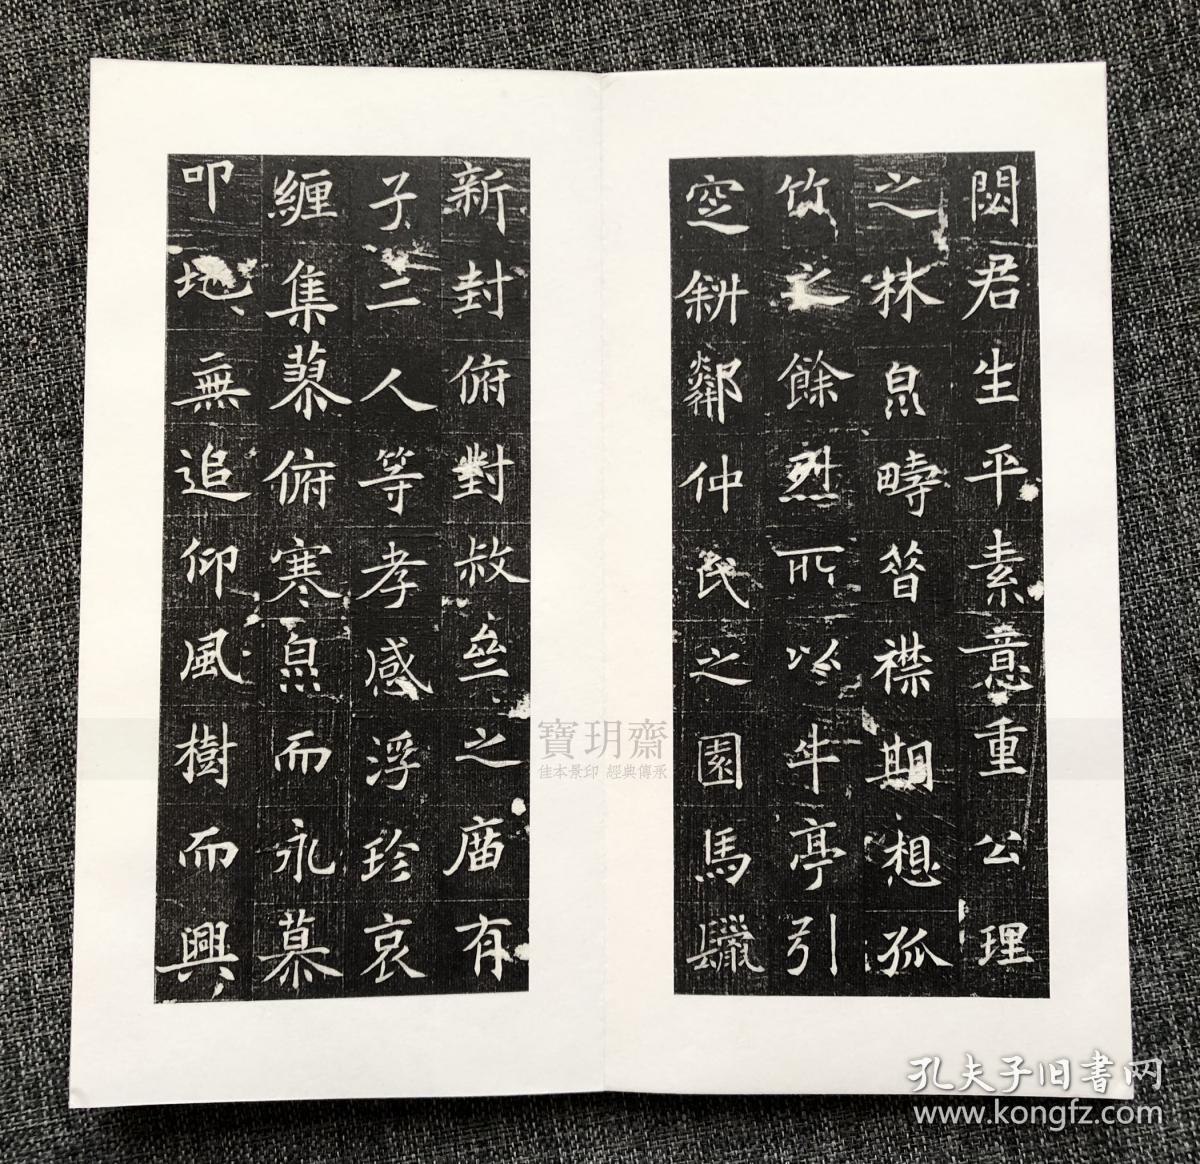 閟君生平素意重公理
之林泉疇昔襟期想孤
竹之餘烈所以牛亭引
窆斜鄰仲民之園馬鬣
新封俯對叔之庿有
子二人等孝感浮珍哀
纏集蓼俯寒泉而永慕
叩地無追仰風樹而興
寶玥齋
佳本景印 經典傳承
孔夫子旧书网
www.kongfz.com